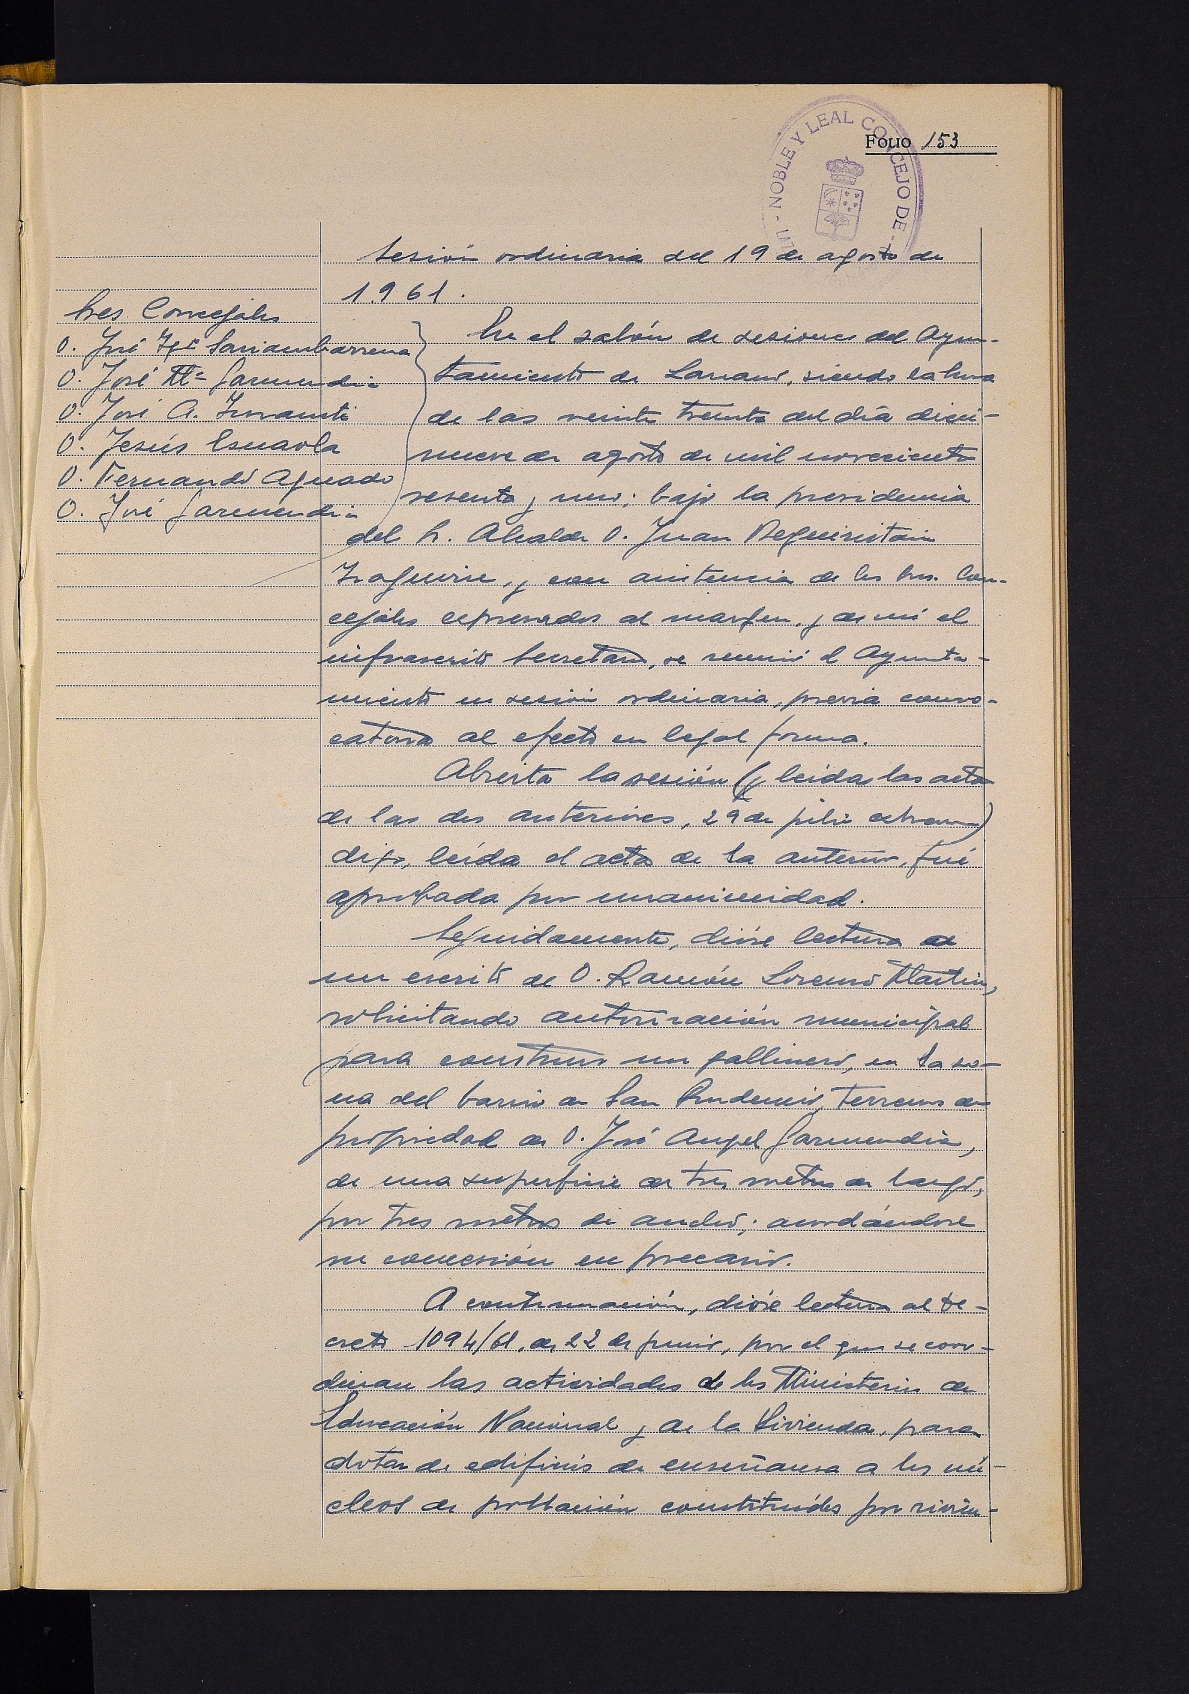 FOLIO 153
- NOBLE Y LEAL CONCEJO DE -
Sesión ordinaria del 19 de agosto de
1961.
Sres. Concejales
D. José Igº Soriambarrena
D. José Mª Garmendia
D. José A.
D. Jesús Esnaola
D. Fernando Aguado
D. José Garmendia
En el salón de sesiones del Ayun-
tamiento de Lazcano, siendo la hora
de las veinte treinta del día dieci-
nueve de agosto de mil novecientos
sesenta y uno; bajo la presidencia
del Sr. Alcalde D. Juan Beguiristain
Izaguirre, y con asistencia de los Sres. Con-
cejales expresados al margen, y de mí el
infrascrito Secretario, se reunió el Ayunta-
miento en sesión ordinaria, previa convo-
catoria al efecto en legal forma.
Abierta la sesión (y leídas las actas
de las dos anteriores, 29 de julio )
digo, leída el acta de la anterior, fué
aprobada por unanimidad.
Seguidamente, dióse lectura de
un escrito de D. Ramón Lorenzo Martin,
solicitando autorización municipal
para construir un gallinero, en la zo-
na del barrio de San Prudencio, terrenos de
propiedad de D. José Angel Garmendia,
de una superficie de tres metros de largo,
por tres metros de ancho; acordándose
su concesión en precario.
A continuación, dióse lectura al De-
creto 1094/61, de 22 de junio, por el que se coor-
dinan las actividades de los Ministerios de
Educación Nacional y de la Vivienda, para
dotar de edificios de enseñanza a los nú-
cleos de población constituídos por vivien-